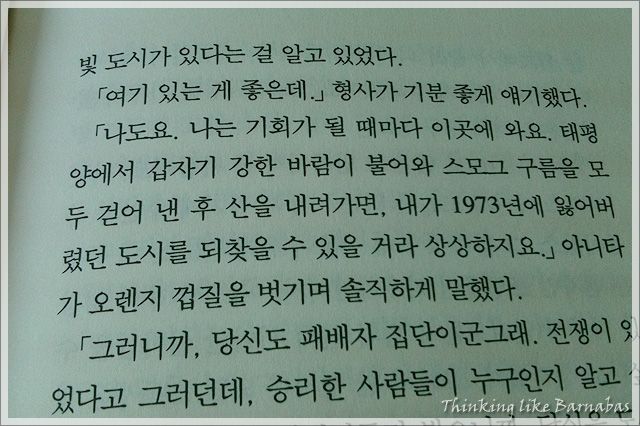 빛 도시가 있다는 걸 알고 있었다.
「여기 있는 게 좋은데.」 형사가 기분 좋게 얘기했다.
「나도요. 나는 기회가 될 때마다 이곳에 와요. 태평
양에서 갑자기 강한 바람이 불어와 스모그 구름을 모
두 걷어 낸 후 산을 내려가면, 내가 1973년에 잃어버
렸던 도시를 되찾을 수 있을 거라 상상하지요.」 아니타
가 오렌지 껍질을 벗기며 솔직하게 말했다.
「그러니까, 당신도 패배자 집단이군그래. 전쟁이 있
었다고 그러던데, 승리한 사람들이 누구인지 알고
Thinking like Barnabas